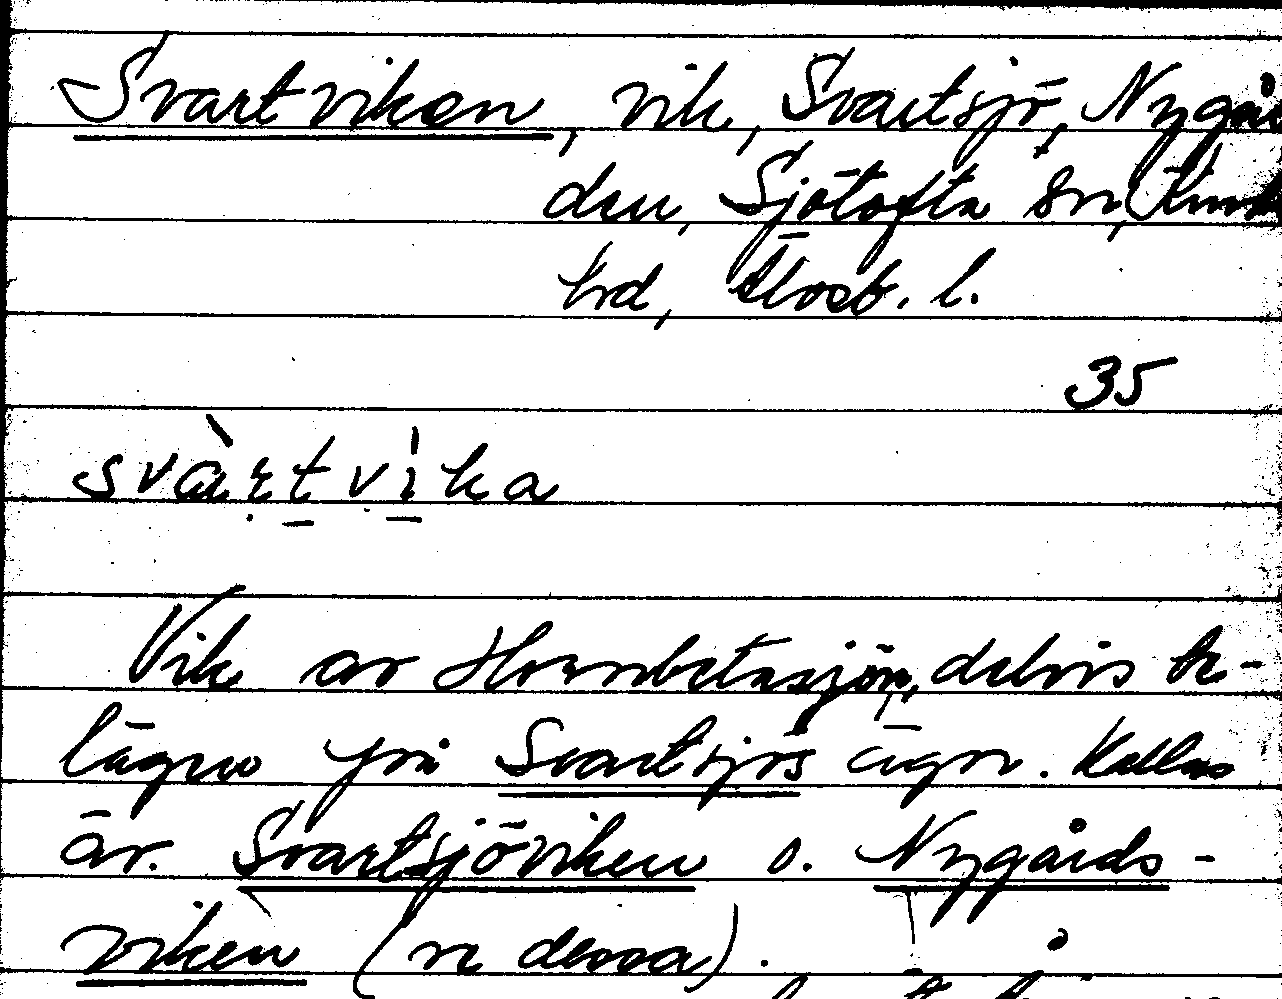 Svartviken, vik, Svartsjö, Nygår
den, Sjötofta sn, Kinds
hd, Älvsb. l.
35
svàrtvìka
Vik av Hornbetasjön, delvis be-
lägen på Svartsjös ägor. Kallas
äv. Svartsjöviken o. Nygårds-
viken (se dessa).